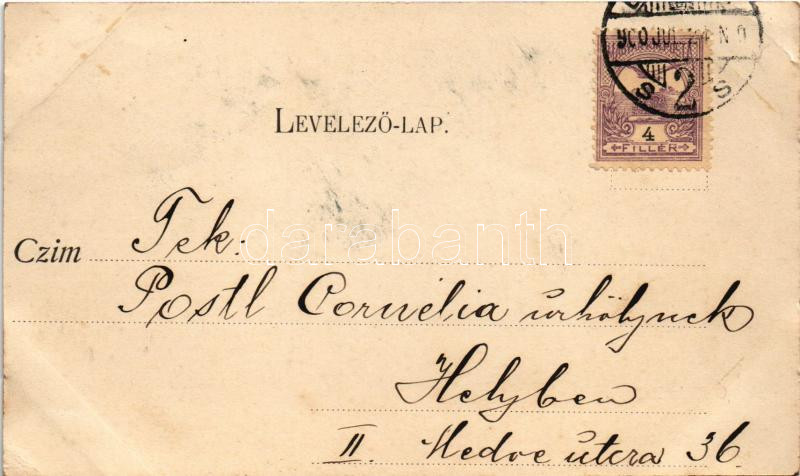 900 JUL
S 2 S
4
FILLÉR
LEVELEZŐ-LAP.
Czim Tek.
darabanth
Postl Cornélia úrhölynek
Helyben
II. Medve utcra 36